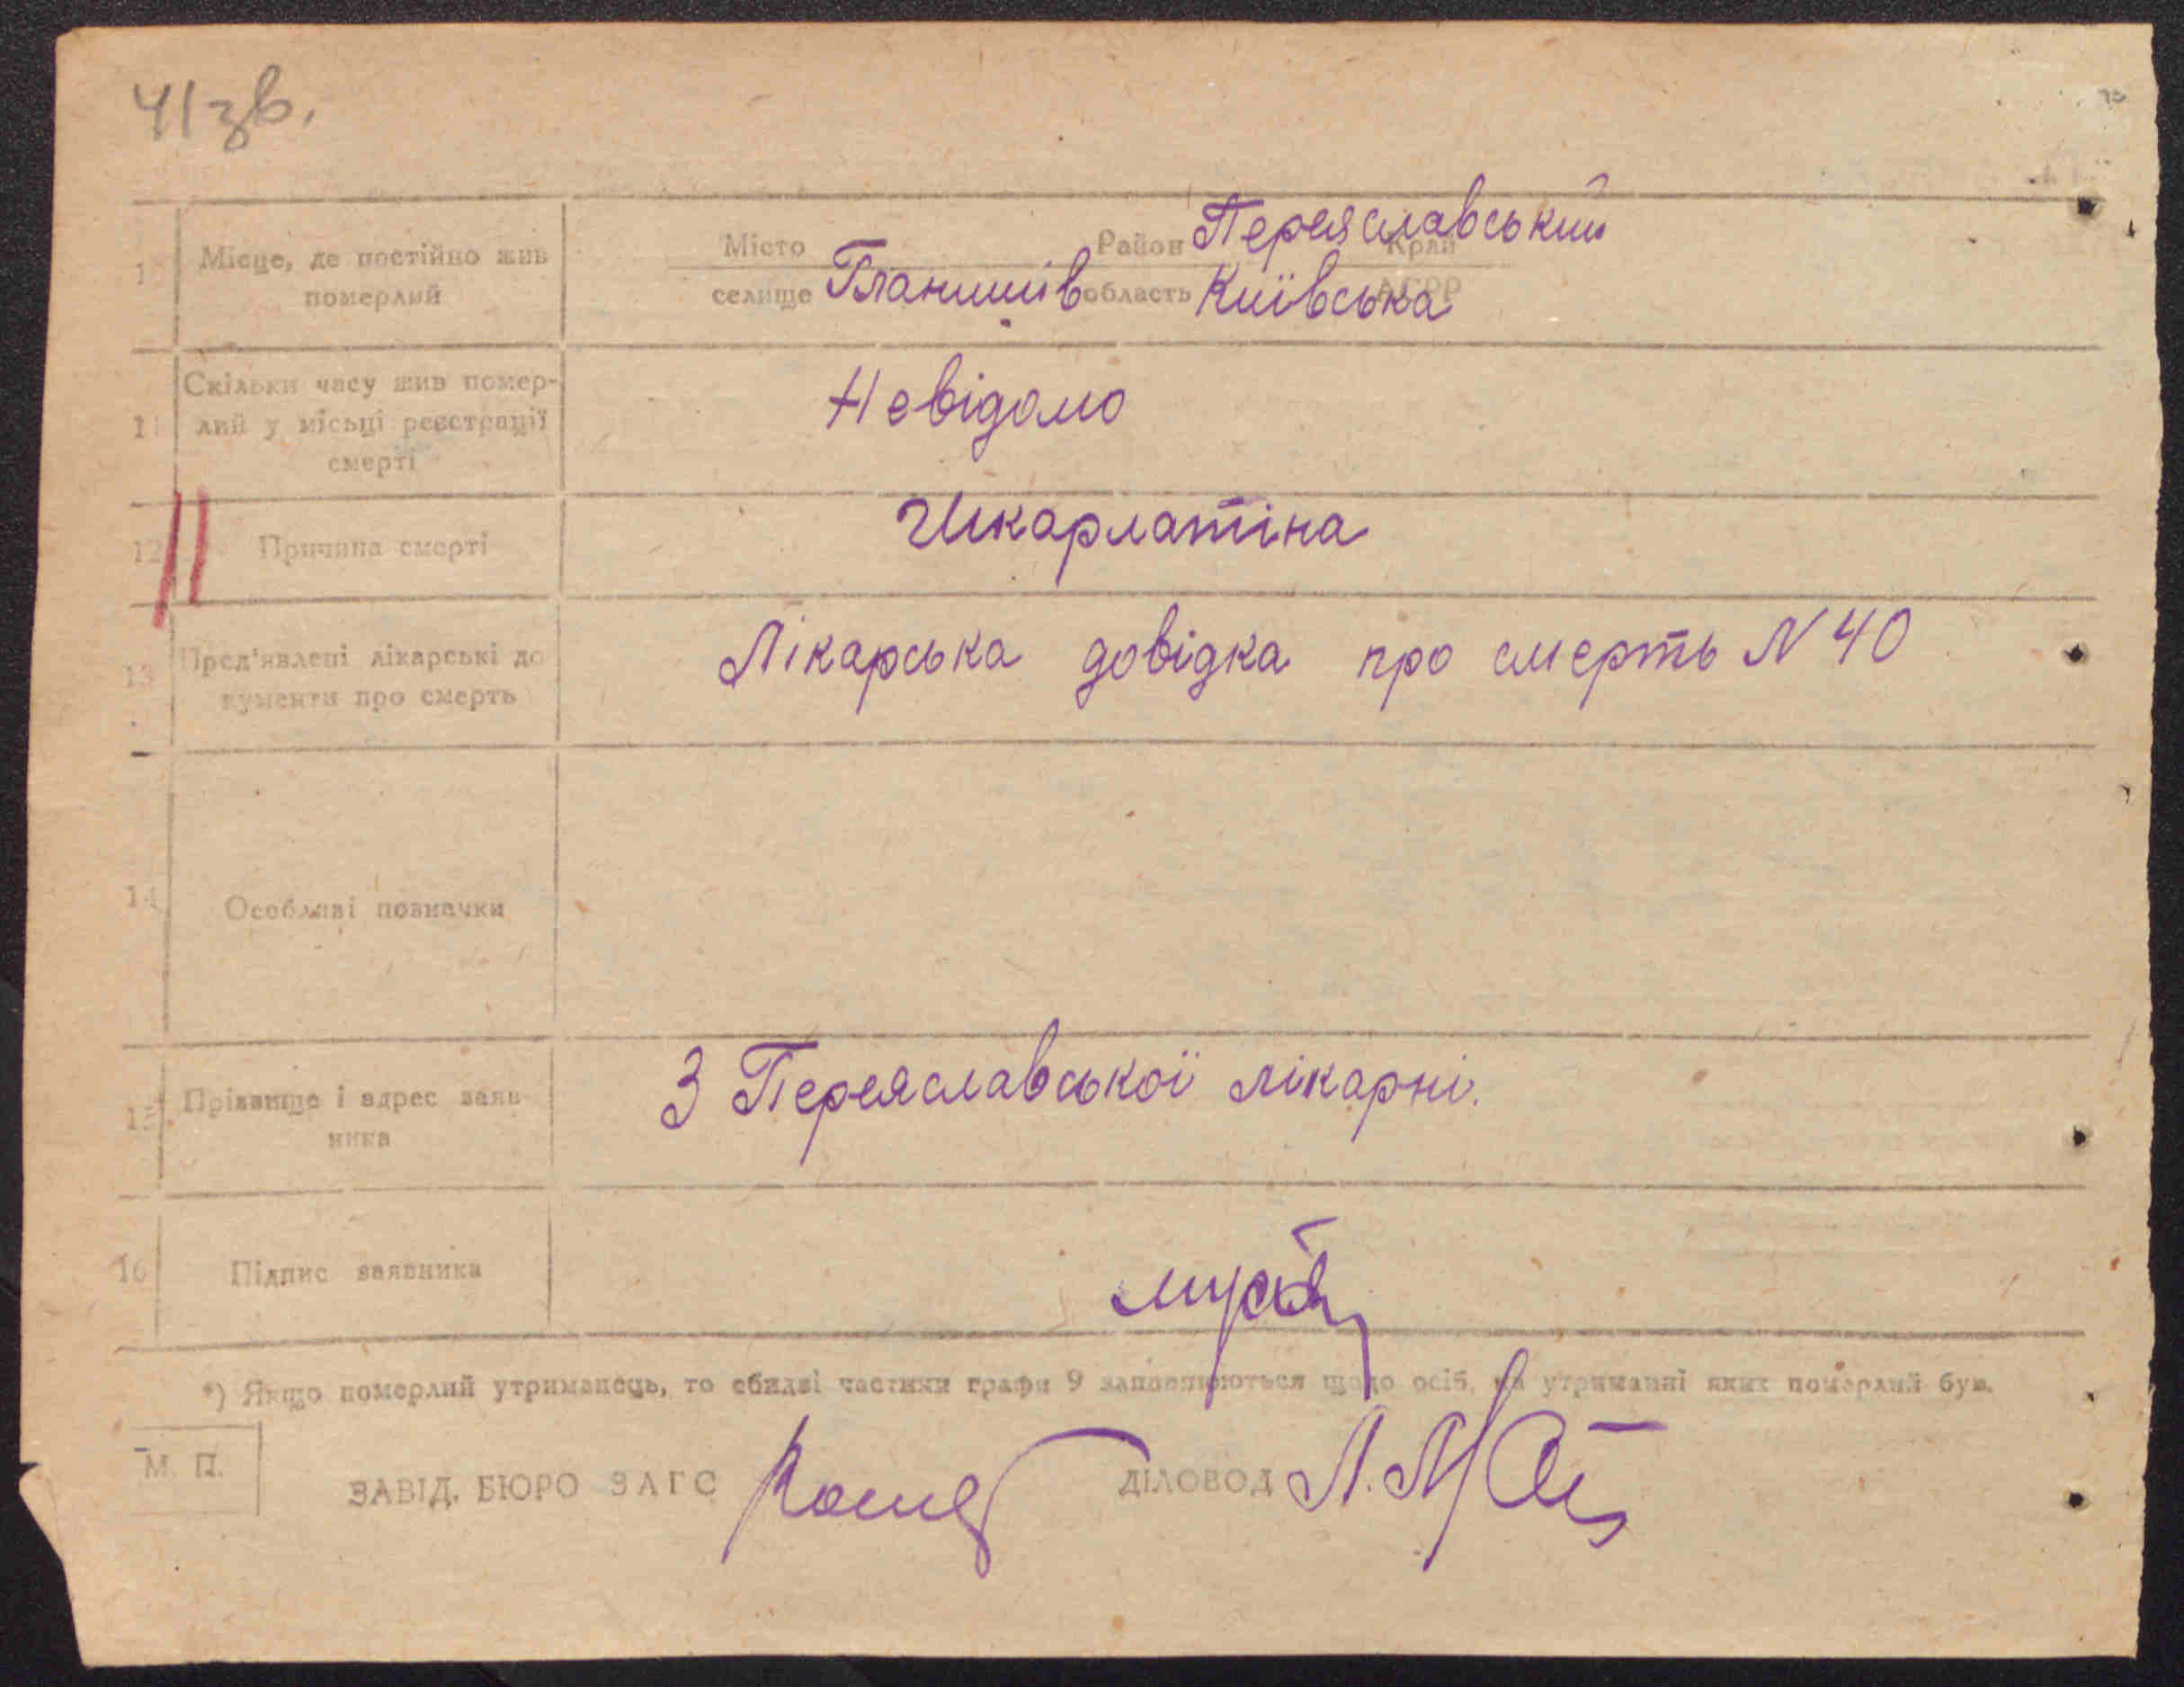 41зв.
Місце, де постійно жив
померлий
Місто Район Переяславський Край
селище Гланишів область Київська АСРР
11 Скільки часу жив помер-
лий у місьці реєстрації
смерті
Невідомо
12 Причина смерті Шкарлатіна
13 Пред'явлені лікарські до
кументи про смерть
Лікарська довідка про смерть N 40
14 Особливі позначки
15 Прізвище і адрес заяв-
ника
З Переяславської лікарні.
16 Підпис заявника
*) Якщо померлий утриманець, то обидві частини графи 9 заповнюються щодо осіб, на утриманні яких померлий був.
М. П.
ЗАВІД. БЮРО ЗАГС ДІЛОВОД